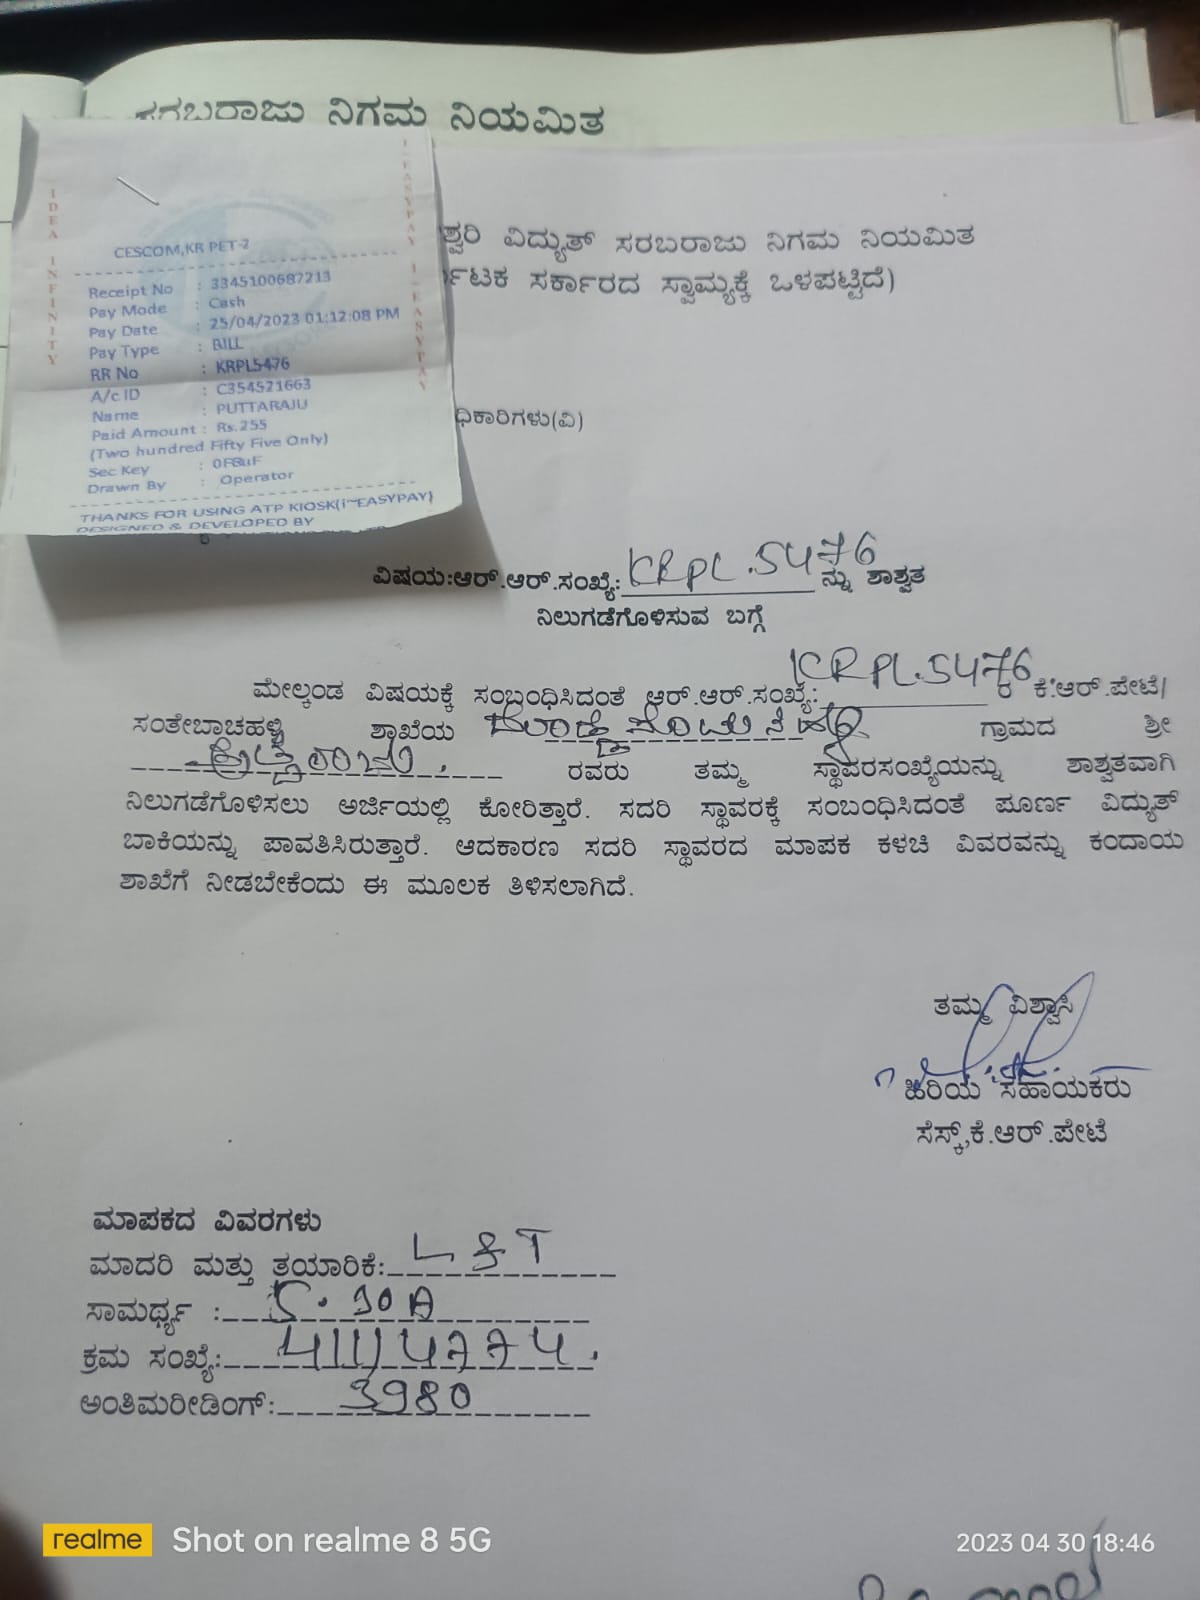 ಸರಬರಾಜು ನಿಗಮ ನಿಯಮಿತ
IDEA INFINITY
I-EASYPAY I-EASYPAY
CESCOM,KR PET-2
Receipt No : 3345100687213
Pay Mode : Cash
Pay Date : 25/04/2023 01:12:08 PM
Pay Type : BILL
RR No : KRPL5476
A/c ID : C354521663
Name : PUTTARAJU
Paid Amount : Rs.255
(Two hundred Fifty Five Only)
Sec Key : 0F8uF
Drawn By : Operator
THANKS FOR USING ATP KIOSK(i~EASYPAY)
DESIGNED & DEVELOPED BY
ಶ್ವರಿ ವಿದ್ಯುತ್ ಸರಬರಾಜು ನಿಗಮ ನಿಯಮಿತ
ರ್ನಾಟಕ ಸರ್ಕಾರದ ಸ್ವಾಮ್ಯಕ್ಕೆ ಒಳಪಟ್ಟಿದೆ)
ಧಿಕಾರಿಗಳು(ವಿ)
ವಿಷಯ:ಆರ್.ಆರ್.ಸಂಖ್ಯೆ: KRPL.5476 ನ್ನು ಶಾಶ್ವತ
ನಿಲುಗಡೆಗೊಳಿಸುವ ಬಗ್ಗೆ
ಮೇಲ್ಕಂಡ ವಿಷಯಕ್ಕೆ ಸಂಬಂಧಿಸಿದಂತೆ ಆರ್.ಆರ್.ಸಂಖ್ಯೆ: KRPL.5476 ರ ಕೆ.ಆರ್.ಪೇಟೆ/
ಸಂತೇಬಾಚಹಳ್ಳಿ ಶಾಖೆಯ ಗ್ರಾಮದ ಶ್ರೀ
ರವರು ತಮ್ಮ ಸ್ಥಾವರಸಂಖ್ಯೆಯನ್ನು ಶಾಶ್ವತವಾಗಿ
ನಿಲುಗಡೆಗೊಳಿಸಲು ಅರ್ಜಿಯಲ್ಲಿ ಕೋರಿತ್ತಾರೆ. ಸದರಿ ಸ್ಥಾವರಕ್ಕೆ ಸಂಬಂಧಿಸಿದಂತೆ ಪೂರ್ಣ ವಿದ್ಯುತ್
ಬಾಕಿಯನ್ನು ಪಾವತಿಸಿರುತ್ತಾರೆ. ಆದಕಾರಣ ಸದರಿ ಸ್ಥಾವರದ ಮಾಪಕ ಕಳಚಿ ವಿವರವನ್ನು ಕಂದಾಯ
ಶಾಖೆಗೆ ನೀಡಬೇಕೆಂದು ಈ ಮೂಲಕ ತಿಳಿಸಲಾಗಿದೆ.
ತಮ್ಮ ವಿಶ್ವಾಸಿ
ಹಿರಿಯ ಸಹಾಯಕರು
ಸೆಸ್ಕ್,ಕೆ.ಆರ್.ಪೇಟೆ
ಮಾಪಕದ ವಿವರಗಳು
ಮಾದರಿ ಮತ್ತು ತಯಾರಿಕೆ: L&T
ಸಾಮರ್ಥ್ಯ : 5-30A
ಕ್ರಮ ಸಂಖ್ಯೆ: 41114774.
ಅಂತಿಮರೀಡಿಂಗ್: 3980
realme Shot on realme 8 5G
2023 04 30 18:46